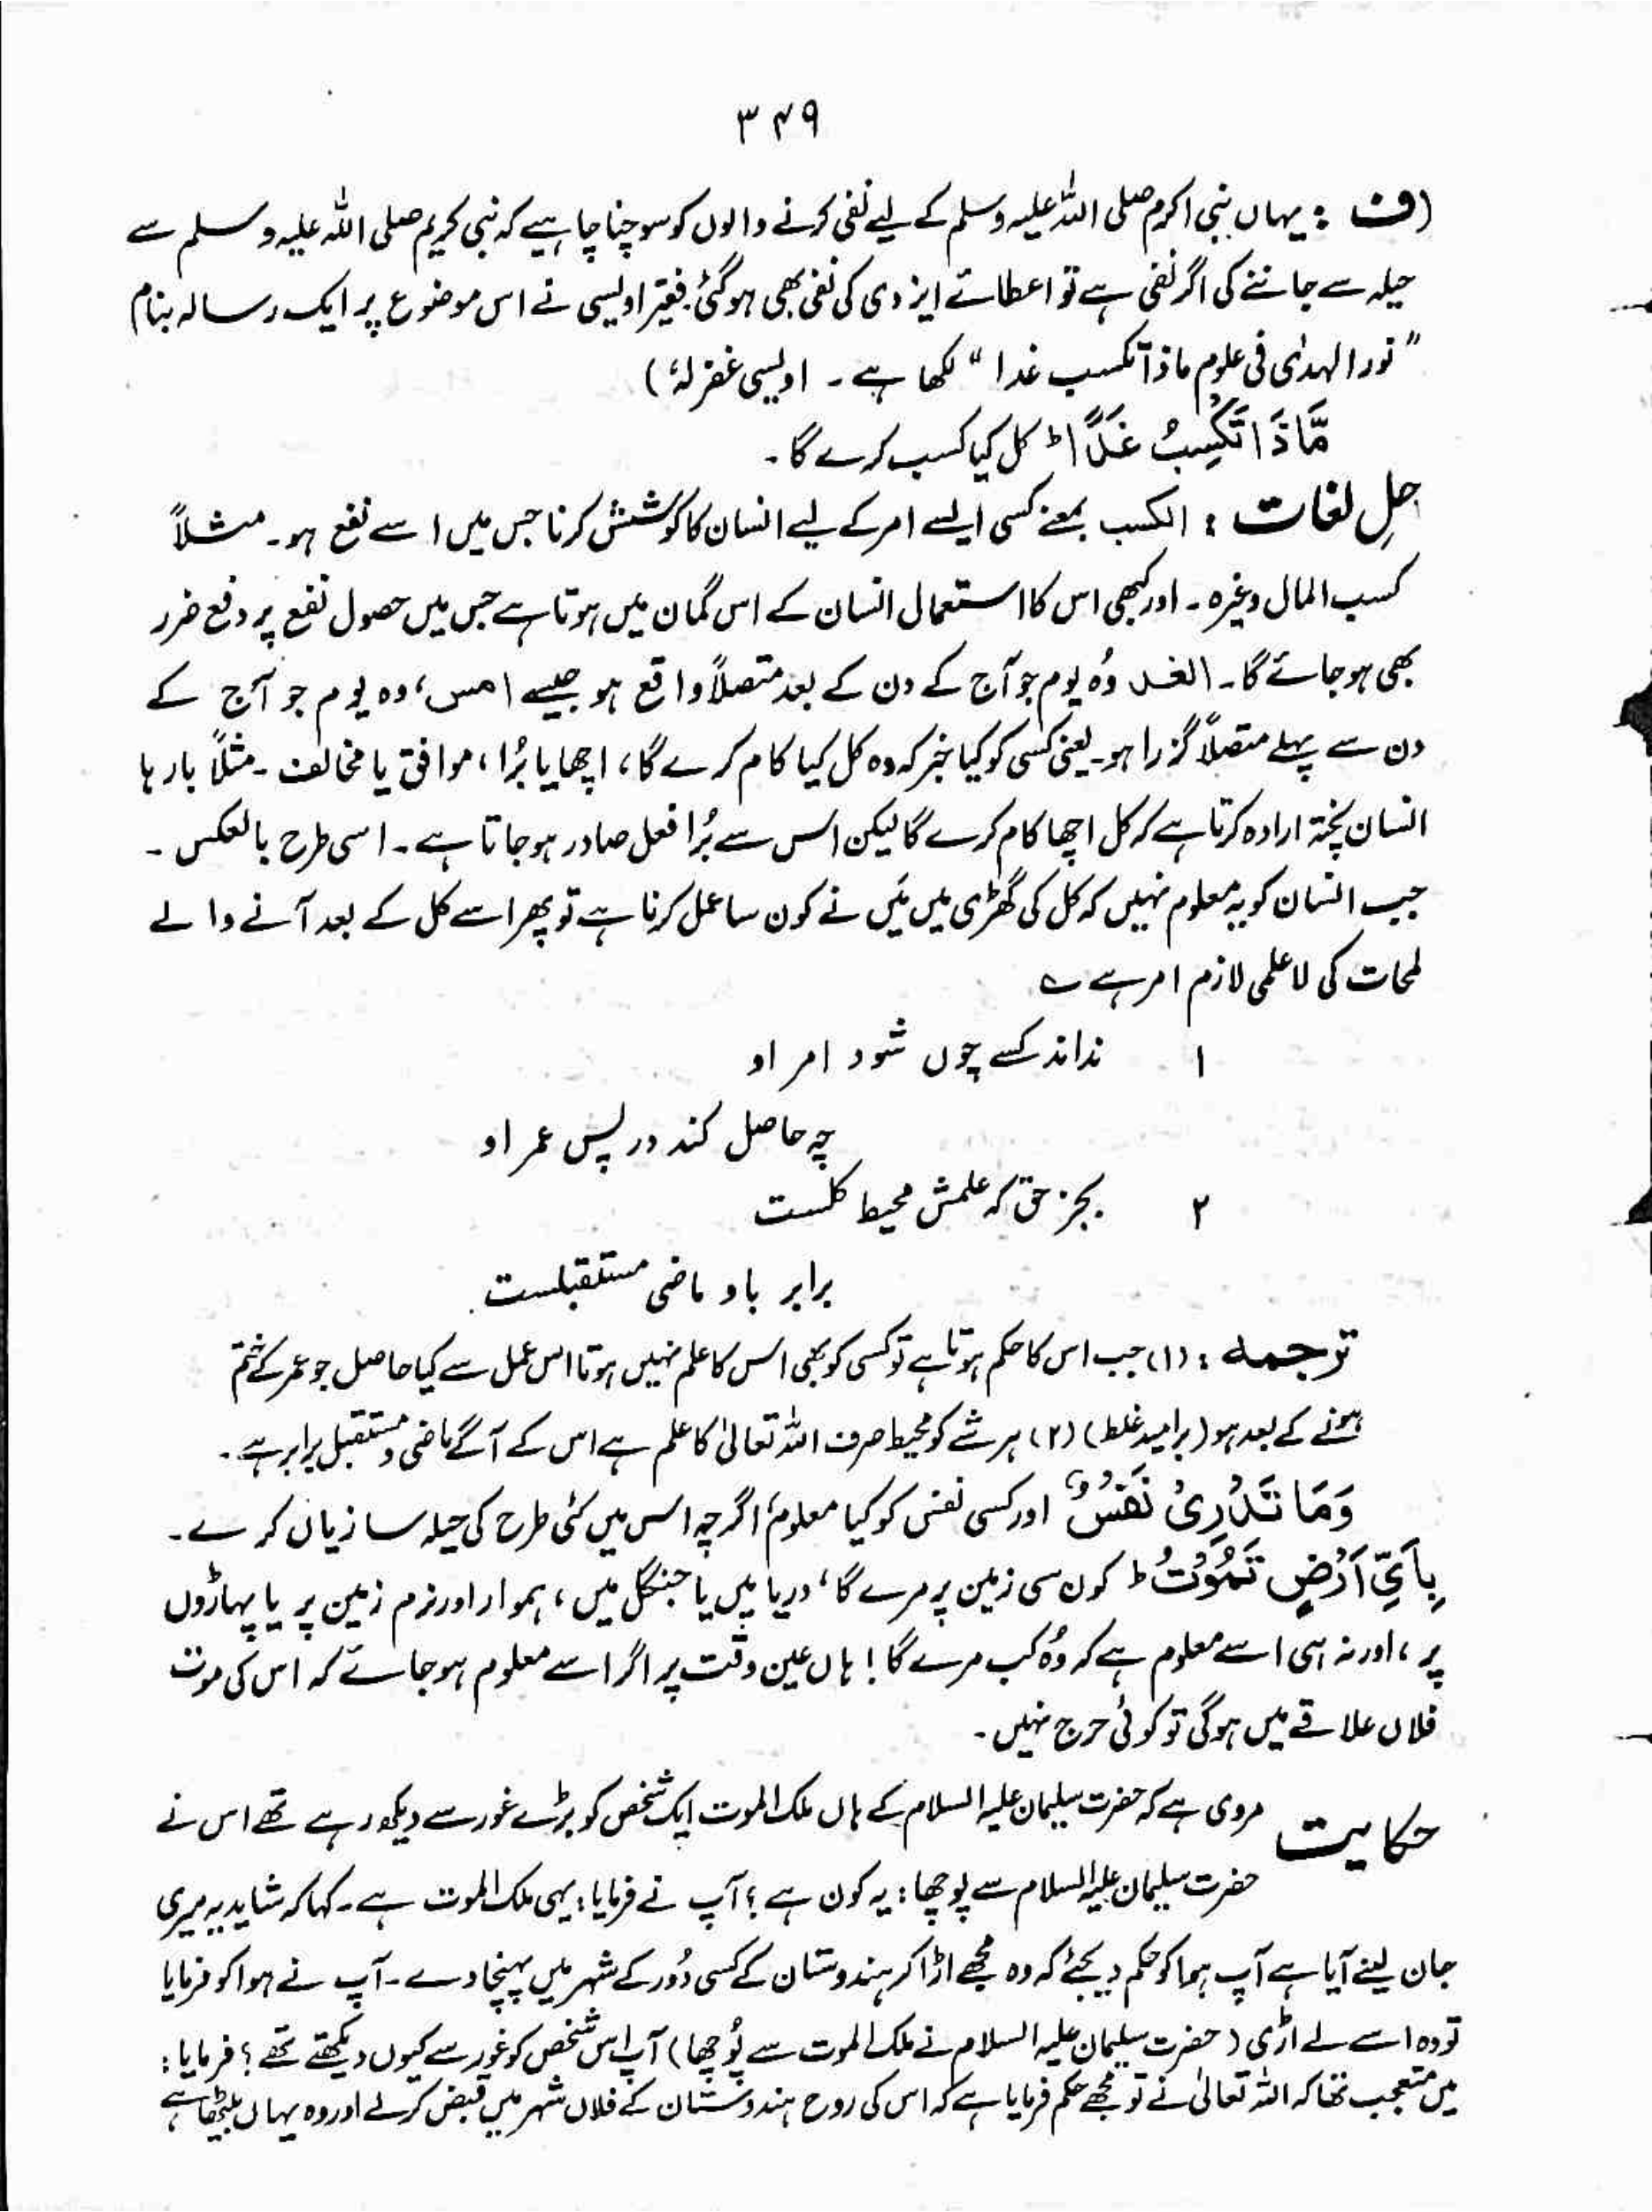 ۳۴۹
(ف : یہاں نبی اکرم صلی اللہ علیہ وسلم کے لیے نفی کرنے والوں کو سوچنا چاہیے کہ نبی کریم صلی اللہ علیہ وسلم سے
حیلہ سے جاننے کی اگر نفی ہے تو اعطائے ایزدی کی نفی بھی ہوگئی۔ فقیر اویسی نے اس موضوع پر ایک رسالہ بنام
"نور الہدٰی فی علوم ماذا تکسب غدا" لکھا ہے ۔ اویسی غفرلہٗ)
مَّاذَا تَکْسِبُ غَدًا ؕ کل کیا کسب کرے گا ۔
حلِ لغات : الکسب بمعنے کسی ایسے امر کے لیے انسان کا کوشش کرنا جس میں اسے نفع ہو ۔ مثلاً
کسب المال وغیرہ ۔ اور کبھی اس کا استعمال انسان کے اس گمان میں ہوتا ہے جس میں حصول نفع پر دفع ضرر
بھی ہو جائے گا ۔ الغد وُہ یوم جو آج کے دن کے بعد متصلاً واقع ہو جیسے امس ، وہ یوم جو آج کے
دن سے پہلے متصلاً گزرا ہو ۔ یعنی کسی کو کیا خبر کہ وہ کل کیا کام کرے گا ، اچھا یا بُرا ، موافق یا مخالف ۔ مثلاً بارہا
انسان پختہ ارادہ کرتا ہے کہ کل اچھا کام کرے گا لیکن اس سے بُرا فعل صادر ہو جاتا ہے ۔ اسی طرح بالعکس ۔
جب انسان کو یہ معلوم نہیں کہ کل کی گھڑی میں مَیں نے کون سا عمل کرنا ہے تو پھر اسے کل کے بعد آنے والے
لمحات کی لاعلمی لازم امر ہے ؎
۱ نداند کسے چوں شود امر او
چہ حاصل کند در پس عمر او
۲ بجز حق کہ علمش محیط کلست
برابر باو ماضی مستقبلست
ترجمہ : (۱) جب اس کا حکم ہوتا ہے تو کسی کو بھی اس کا علم نہیں ہوتا اس عمل سے کیا حاصل جو عمر کے ختم
ہونے کے بعد ہو (برامید غلط) (۲) ہر شے کو محیط صرف اللہ تعالیٰ کا علم ہے اس کے آگے ماضی و مستقبل برابر ہے ۔
وَمَا تَدْرِیْ نَفْسٌۢ اور کسی نفس کو کیا معلوم ، اگرچہ اس میں کئی طرح کی حیلہ سازیاں کرے ۔
بِاَیِّ اَرْضٍ تَمُوْتُ ؕ کون سی زمین پر مرے گا ، دریا میں یا جنگل میں ، ہموار اور نرم زمین پر یا پہاڑوں
پر ، اور نہ ہی اسے معلوم ہے کہ وُہ کب مرے گا ! ہاں عین وقت پر اگر اسے معلوم ہو جائے کہ اس کی موت
فلاں علاقے میں ہوگی تو کوئی حرج نہیں ۔
حکایت مروی ہے کہ حضرت سلیمان علیہ السلام کے ہاں ملک الموت ایک شخص کو بڑے غور سے دیکھ رہے تھے اس نے
حضرت سلیمان علیہ السلام سے پوچھا : یہ کون ہے ؟ آپ نے فرمایا : یہی ملک الموت ہے ۔ کہا کہ شاید یہ میری
جان لینے آیا ہے آپ ہوا کو حکم دیجئے کہ وہ مجھے اڑا کر ہندوستان کے کسی دُور کے شہر میں پہنچا دے ۔ آپ نے ہوا کو فرمایا
تو وہ اسے لے اڑی (حضرت سلیمان علیہ السلام نے ملک الموت سے پُوچھا) آپ اس شخص کو غور سے کیوں دیکھتے تھے ؟ فرمایا :
میں متعجب تھا کہ اللہ تعالیٰ نے تو مجھے حکم فرمایا ہے کہ اس کی روح ہندوستان کے فلاں شہر میں قبض کر لے اور وہ یہاں بیٹھا ہے